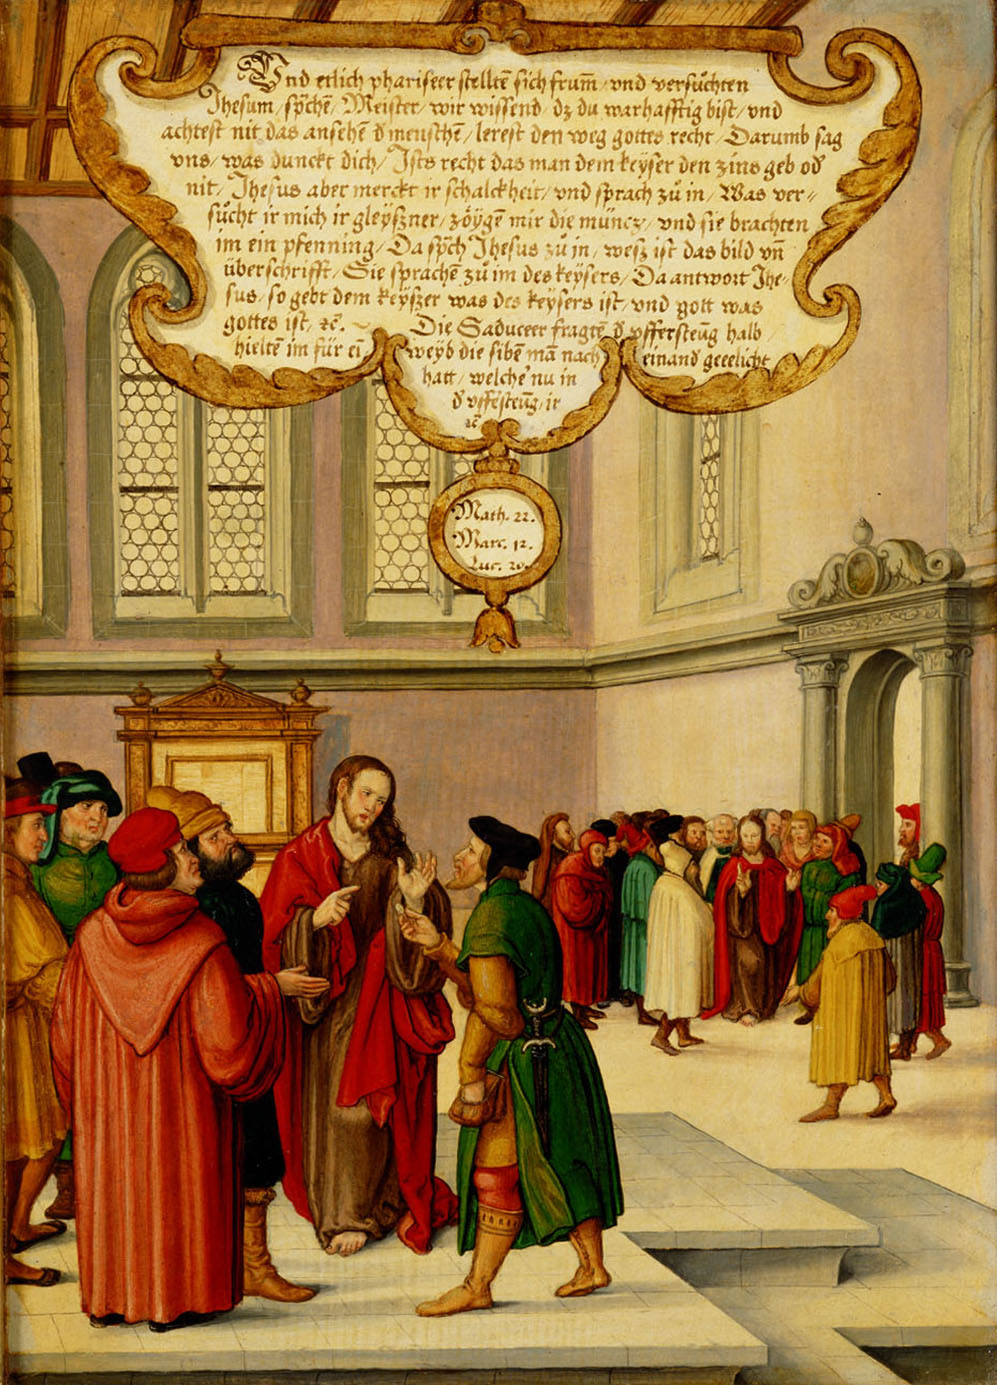 Vnd etlich phariseer stelltē sich frum̄ / vnd versůchten
Jhesum / sp̄chē / Meister / wir wissend / dz du warhafftig bist / vnd
achtest nit das ansehē d̄ menschē / lerest den weg gottes recht / Darumb sag
vns / was dunckt dich / Ists recht das man dem keyser den zins geb od̄
nit / Jhesus aber merckt ir schalckheit / vnd sprach zů in / Was ver=
sůcht ir mich ir gleyßner / zöygē mir die müncz / vnd sie brachten
im ein pfenning / Da sp̄ch Jhesus zů in / wesz ist das bild vn̄
überschrifft / Sie sprachē zů im des keysers / Da antwort Jhe-
sus / so gebt dem keyszer was des keysers ist / vnd gott was
gottes ist / ꝛc̄. Die Saduceer fragtē d̄ vffersteūg halb /
hieltē im für ei̅ weyb die sibē mā nach einand geeelicht
hatt / welche' nu in
d̄ vffēsteūg / ir
ꝛc̄
Math. 22.
Marc. 12.
Luc. 20.